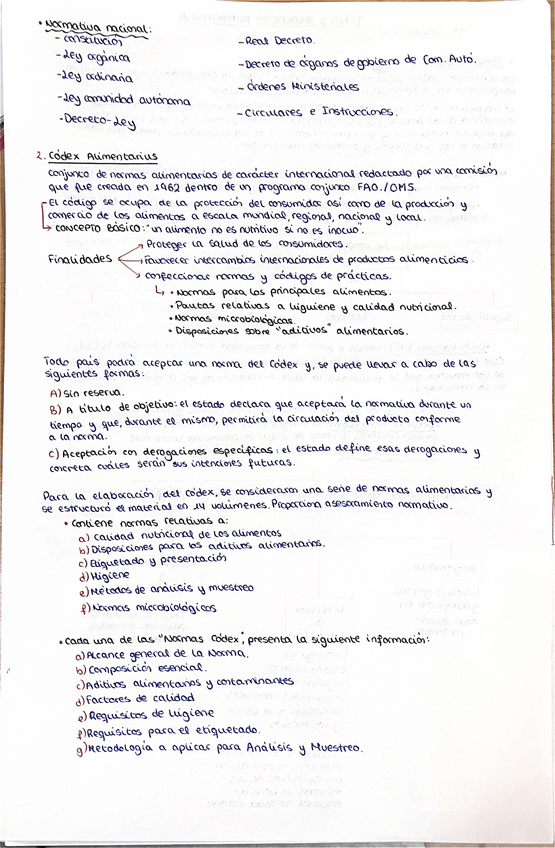 • Normativa nacional:
- Constitución
- Real Decreto.
- Ley orgánica
- Decreto de órganos de gobierno de Com. Autó.
- Ley ordinaria
- Órdenes Ministeriales
- Ley comunidad autónoma
- Circulares e Instrucciones.
- Decreto-Ley
2. Códex Alimentarius
Conjunto de normas alimentarias de carácter internacional redactado por una comisión
que fue creada en 1962 dentro de un programa conjunto FAO./OMS.
El código se ocupa de la protección del consumidor así como de la producción y
comercio de los alimentos a escala mundial, regional, nacional y local.
→ CONCEPTO BÁSICO: "un alimento no es nutritivo si no es inocuo".
Proteger la salud de los consumidores.
Finalidades Favorecer intercambios internacionales de productos alimenticios.
Confeccionar normas y códigos de prácticas.
• Normas para los principales alimentos.
• Pautas relativas a higiene y calidad nutricional.
• Normas microbiológicas.
• Disposiciones sobre "aditivos" alimentarios.
Todo país podrá aceptar una norma del Códex y, se puede llevar a cabo de las
siguientes formas:
A) Sin reserva.
B) A título de objetivo: el estado declara que aceptará la normativa durante un
tiempo y que, durante el mismo, permitirá la circulación del producto conforme
a la norma.
C) Aceptación con derogaciones específicas: el estado define esas derogaciones y
concreta cuáles serán sus intenciones futuras.
Para la elaboración del códex, se consideraron una serie de normas alimentarias y
se estructuró el material en 14 volúmenes. Proporciona asesoramiento normativo.
• Contiene normas relativas a:
a) Calidad nutricional de los alimentos
b) Disposiciones para los aditivos alimentarios.
c) Etiquetado y presentación
d) Higiene
e) Métodos de análisis y muestreo
f) Normas microbiológicas
• Cada una de las "Normas Códex", presenta la siguiente información:
a) Alcance general de la Norma.
b) Composición esencial.
c) Aditivos alimentarios y contaminantes
d) Factores de calidad
e) Requisitos de higiene
f) Requisitos para el etiquetado.
g) Metodología a aplicar para Análisis y Muestreo.